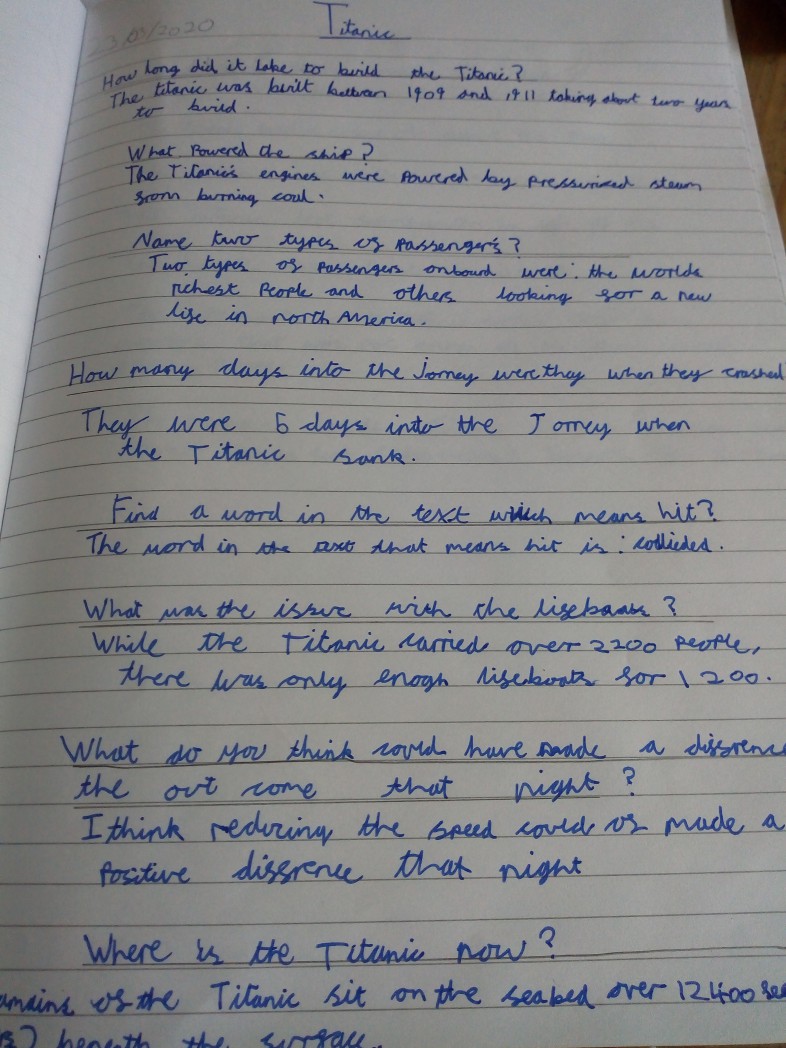 23/03/2020
Titanic
How long did it take to build the Titanic?
The titanic was built between 1909 and 1911 taking about two years
to build.
What Powered the ship?
The Titanic's engines were Powered by Pressurized steam
from burning coal.
Name two types of Passenger's?
Two types of Passengers onboard were: the worlds
richest People and others looking for a new
life in north America.
How many days into the Jorney were they when they crashed
They were 5 days into the Jorney when
the Titanic sank.
Find a word in the text which means hit?
The word in the text that means hit is: collieded.
What was the issue with the lifeboats?
While the Titanic carried over 2200 People,
there was only enogh lifeboats for 1200.
What do you think could have made a diffrence
the out come that night?
I think reducing the speed could of made a
Positive diffrence that night
Where is the Titanic now?
emains of the Titanic sit on the seabed over 12400 fee
beneath the surface.